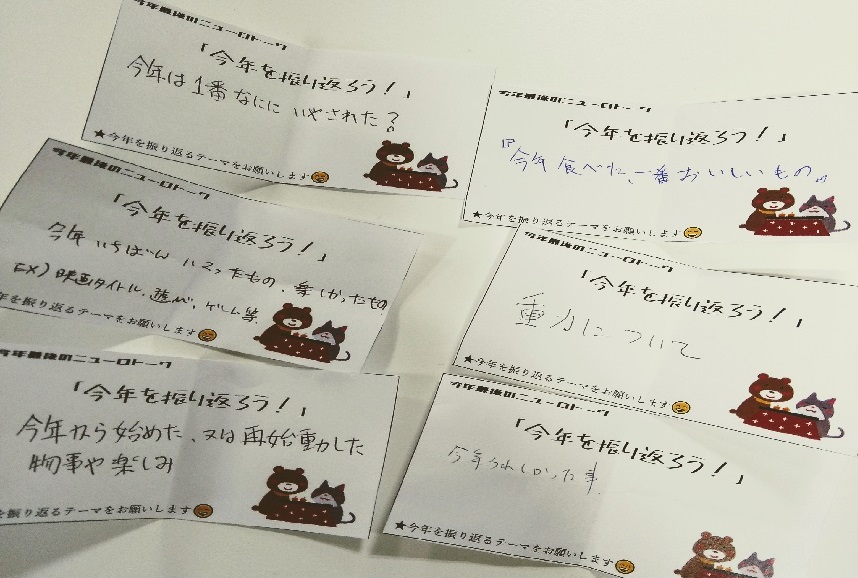 今年最後のニューロトーク
「今年を振り返ろう!」
今年は1番なにに いやされた?
★今年を振り返るテーマをお願いします
今年最後のニューロトーク
「今年を振り返ろう!」
『今年 食べた、一番おいしいもの』
★今年を振り返るテーマをお願いします
今年最後のニューロトーク
「今年を振り返ろう!」
今年 いちばん ハマったもの・楽しかったもの
EX)映画タイトル、遊び、ゲーム等
年を振り返るテーマをお願いします
今年最後のニューロトーク
「今年を振り返ろう!」
重力について
★今年を振り返るテーマをお願いします
今年最後のニューロトーク
「今年を振り返ろう!」
今年から始めた、又は再始動した
物事や楽しみ
を振り返るテーマをお願いします
今年最後のニューロトーク
「今年を振り返ろう!」
今年うれしかった事
★今年を振り返るテーマをお願いします